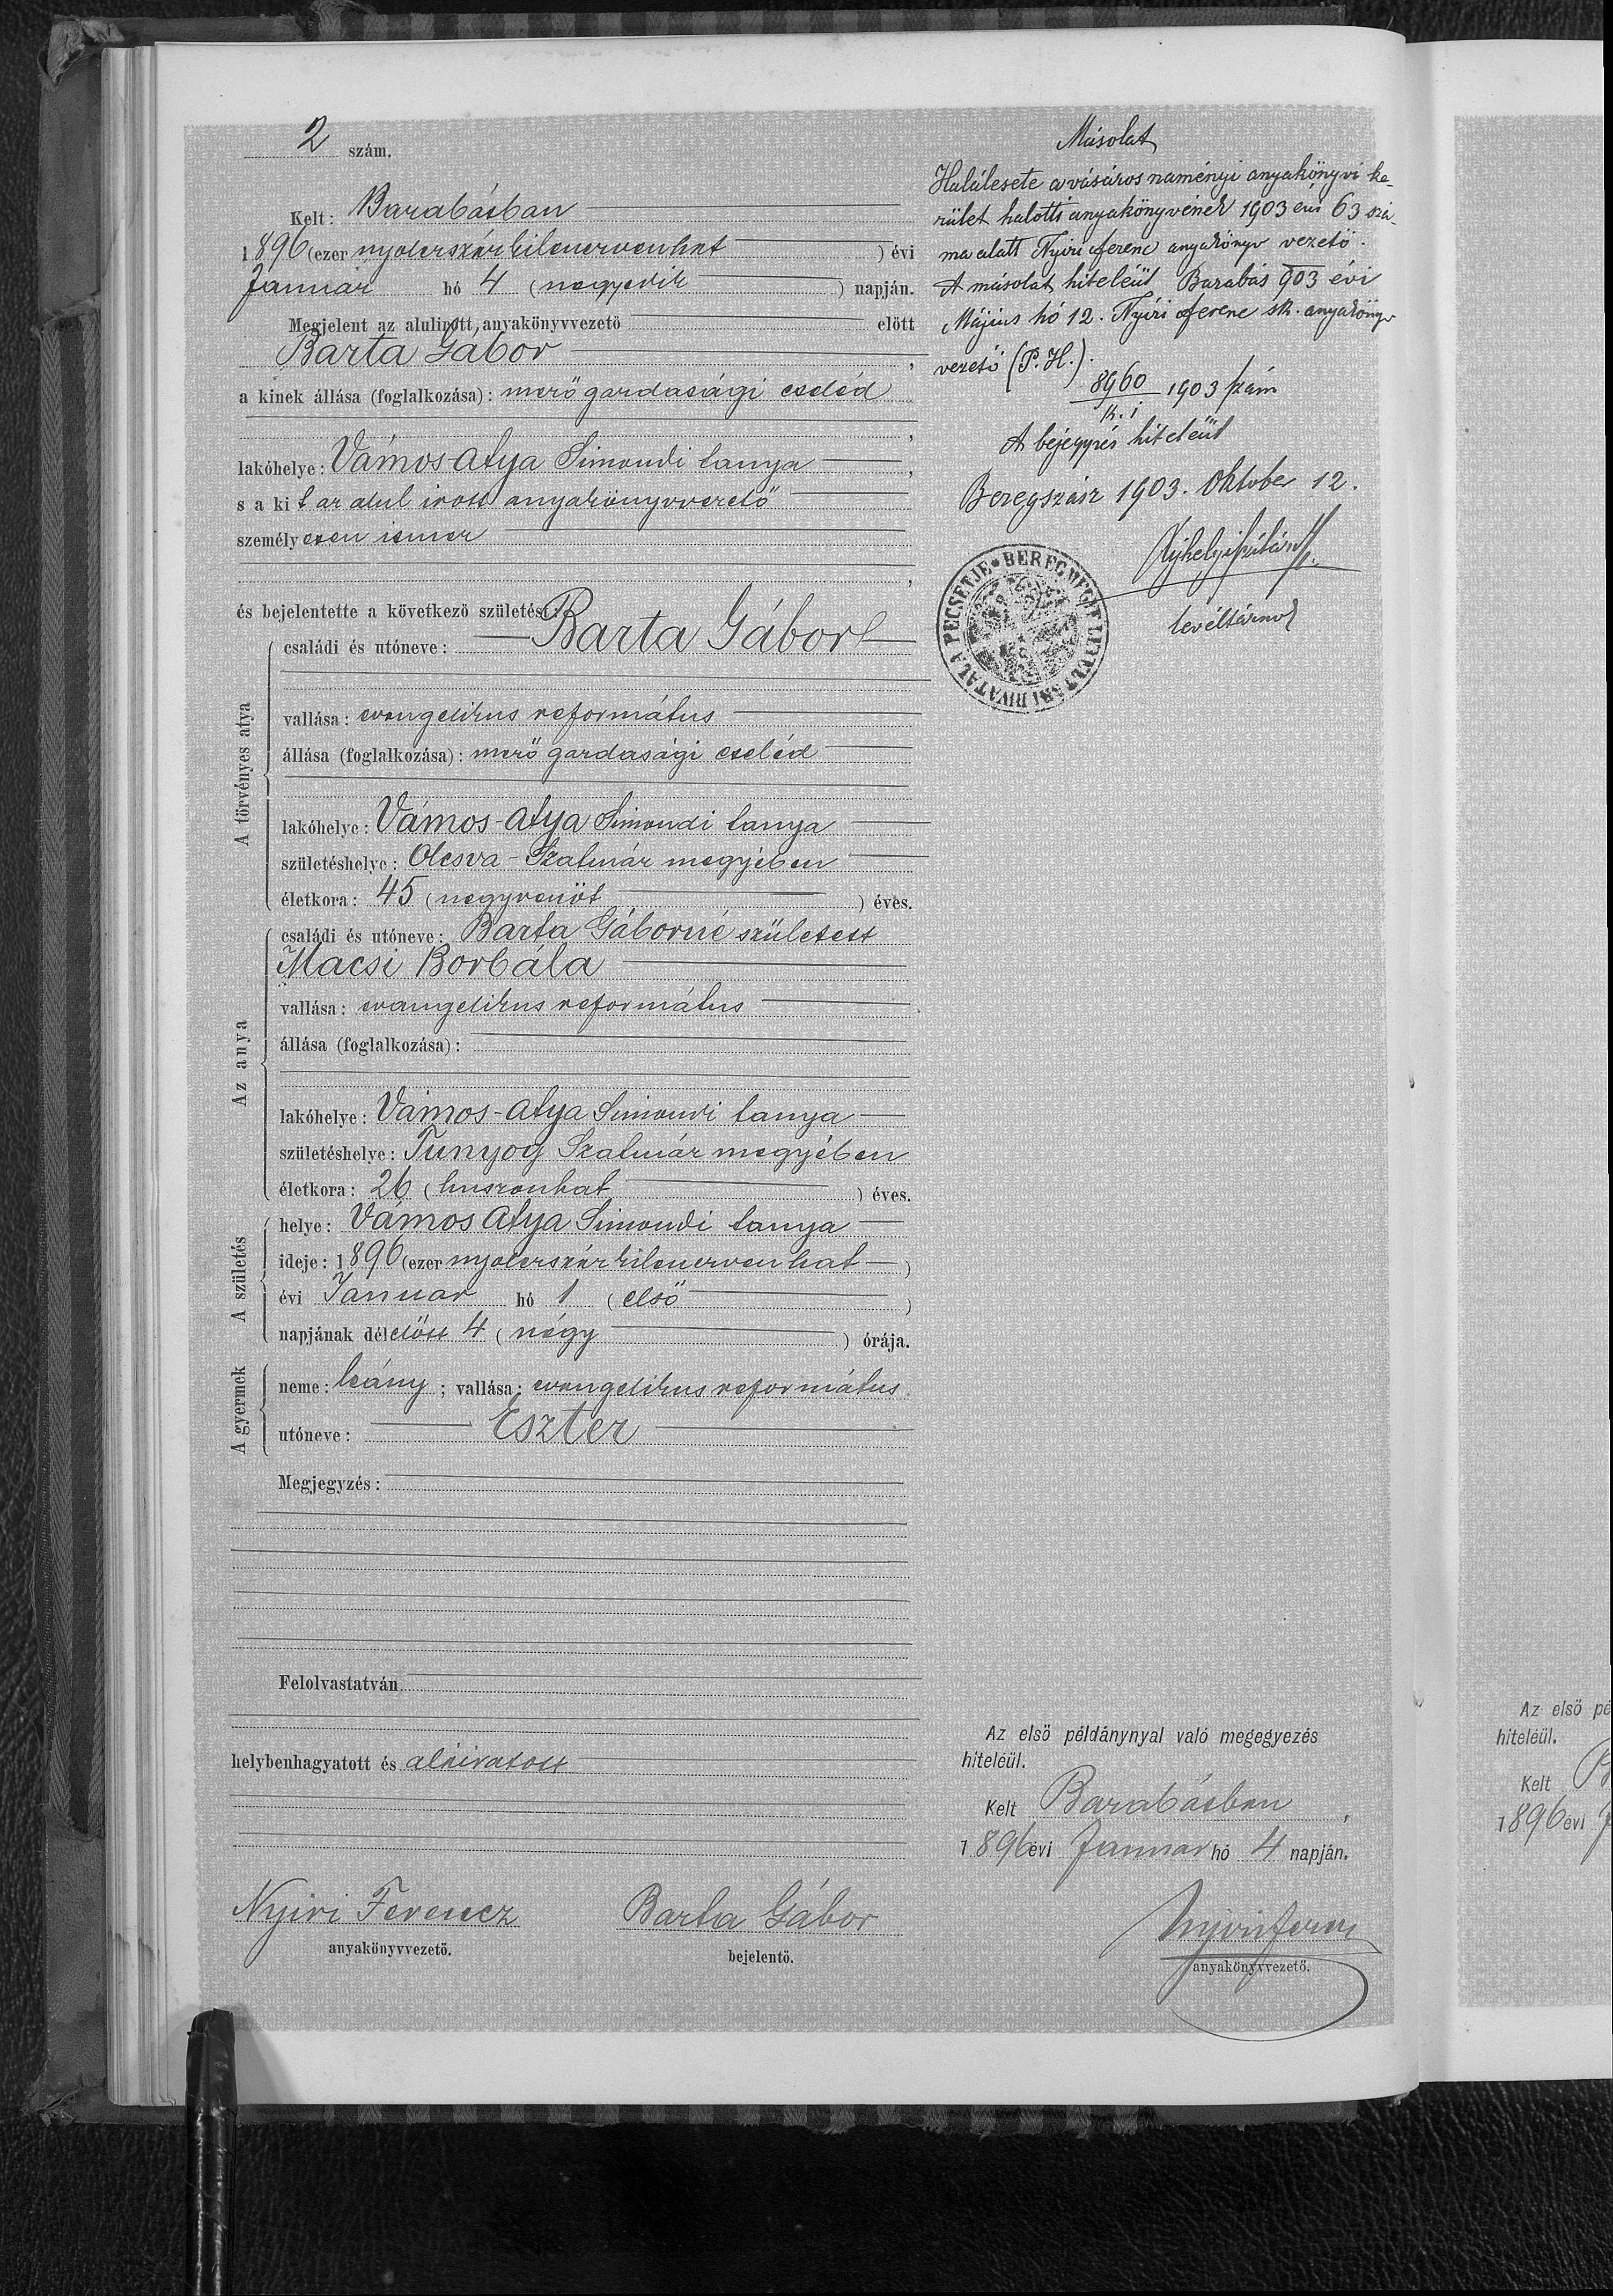 2 szám.
Kelt: Barabásban
1896 (ezer nyolcszázkilencvenhat ) évi
Január hó 4 (negyedik ) napján.
Megjelent az alulirott anyakönyvvezető előtt
Barta Gábor ,
a kinek állása (foglalkozása): mezőgazdasági cseléd
,
lakóhelye: Vámos-Atya Simondi tanya ,
s a kit az alul irott anyakönyvvezető
személyesen ismer
,
és bejelentette a következő születést:
A törvényes atya
családi és utóneve: Barta Gábor
vallása: evangelikus református
állása (foglalkozása): mező gazdasági cseléd
lakóhelye: Vámos-Atya Simondi tanya
születéshelye: Olcsva-Szatmár megyében
életkora: 45 (negyvenöt ) éves.
Az anya
családi és utóneve: Barta Gáborné született
Macsi Borbála
vallása: evangelikus református
állása (foglalkozása):
lakóhelye: Vámos-Atya Simondi tanya
születéshelye: Tunyog Szatmár megyében
életkora: 26 (huszonhat ) éves.
A születés
helye: Vámos Atya Simondi tanya
ideje: 1896 (ezer nyolcszáz kilencvenhat )
évi Január hó 1 (első )
napjának délelőtt 4 (négy ) órája.
A gyermek
neme: leány; vallása: evangelikus református
utóneve: Eszter
Megjegyzés:
Felolvastatván
helybenhagyatott és aláiratott
Nyiri Ferencz
anyakönyvvezető.
Barta Gábor
bejelentő.
Másolat
Halálesete a vásárosnaményi anyakönyvi ke-
rület halotti anyakönyvének 1903 évi 63 szá-
ma alatt Nyiri Ferenc anyakönyv vezető.
A másolat hiteléül Barabás 903 évi
Május hó 12. Nyíri Ferenc sk. anyakönyv
vezető (P. H.).
8960
k. i 1903 szám
A bejegyzés hiteléül
Beregszász 1903. Oktober 12.
levéltárnok
BEREGMEGYE LEVÉLTÁRI HIVATALA PECSÉTJE
Az első példánynyal való megegyezés
hiteléül.
Kelt Barabásban ,
1896 évi Január hó 4 napján.
Nyiri Ferenc
anyakönyvvezető.
Az első pé
hiteléül.
Kelt B
1896 évi J